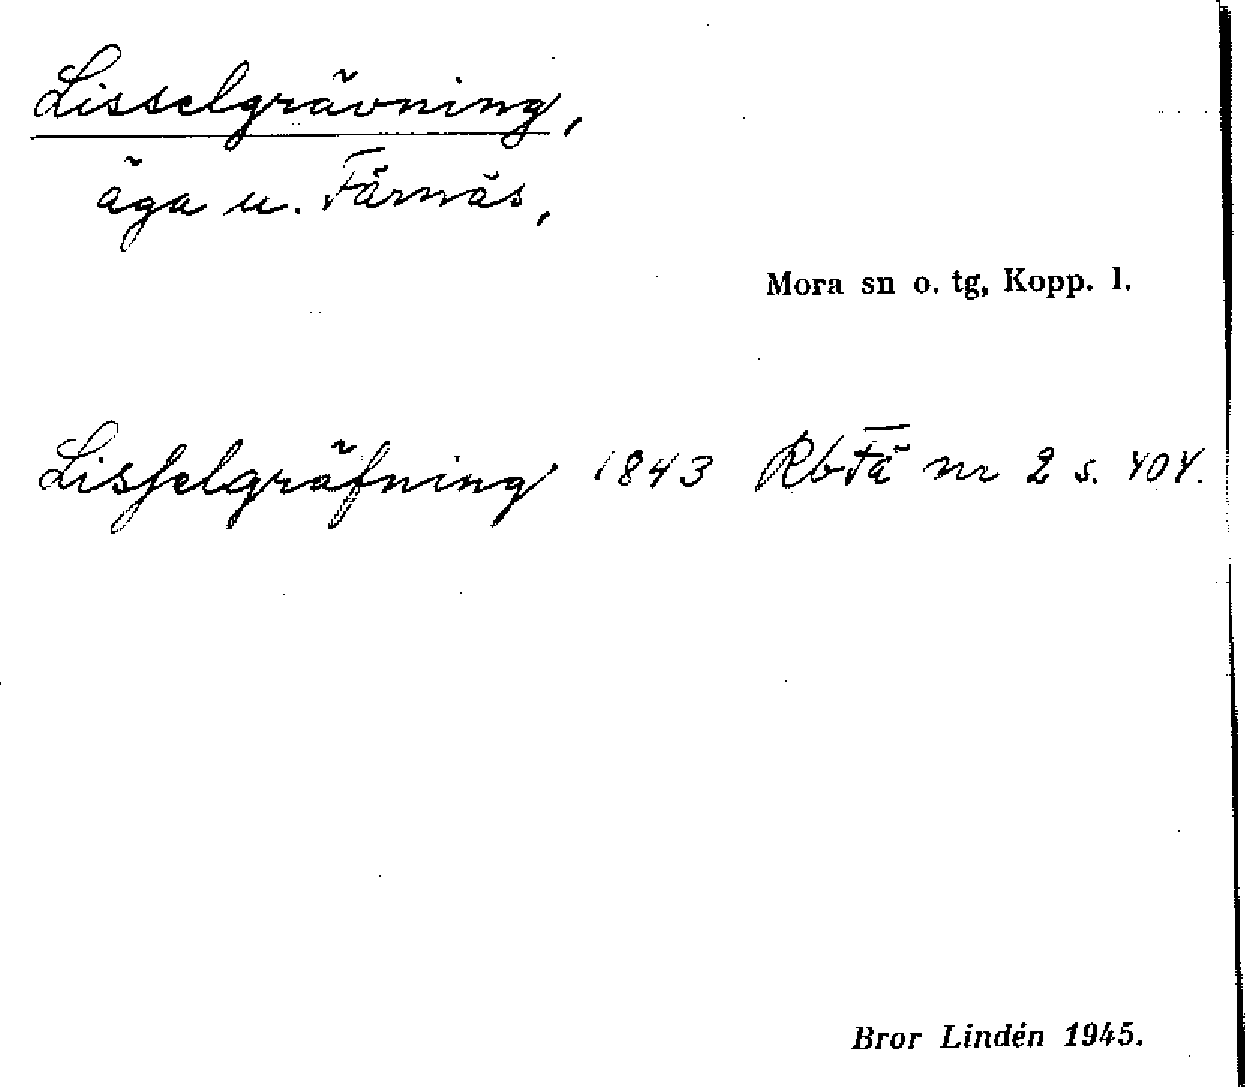 Lisselgrävning,
äga u. Färnäs,
Mora sn o. tg, Kopp. l.
Lisselgräfning 1843 RbFä nr 2 s. 404.
Bror Lindén 1945.